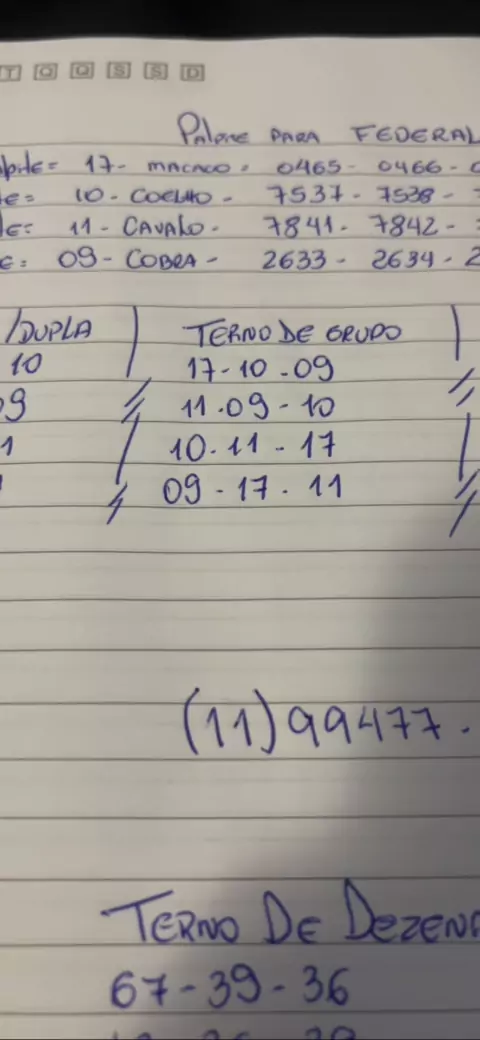 T Q Q S S D
Palpite PARA FEDERAL
lpite= 17- MACACO- 0465- 0466-
te= 10- COELHO- 7537- 7538-
te= 11- CAVALO- 7841- 7842-
e= 09- COBRA- 2633- 2634- 2
/DUPLA | TERNO DE GRUPO |
10 17-10-09
09 // 11.09-10 //
1 10.11-17
09-17.11
(11)99477.
TERNO DE DEZENA
67-39-36